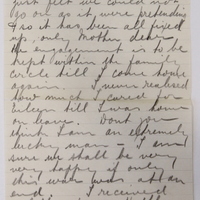 just felt we could not
go on as it were pretending
& so it has been all fixed
up, only Mother dear
the engagement is to be
kept within the family
circle till I come home
again. I never realised
how much I cared for
till I was home
on leave. Dont you
think I am an extremely
lucky man - I am
sure we shall be very
very happy if only
this war was at an
end. I received